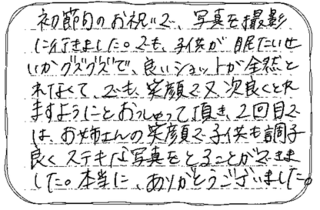 初節句のお祝いで、写真を撮影
に行きました。でも、子供が眠たいせ
いかグズグズで、良いショットが全然と
れなくて、でも、笑顔で又、次良くとれ
ますようにとおっしゃって頂き、2回目で
は、お姉さんの笑顔で子供も調子
良くステキな写真をとることができま
した。本当に、ありがとうございました。